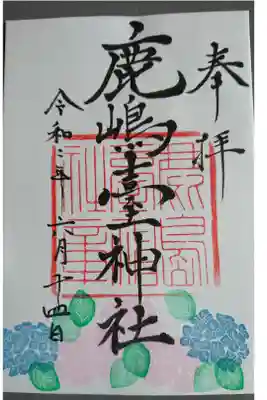 奉拝
鹿嶋臺神社
令和二年六月十四日